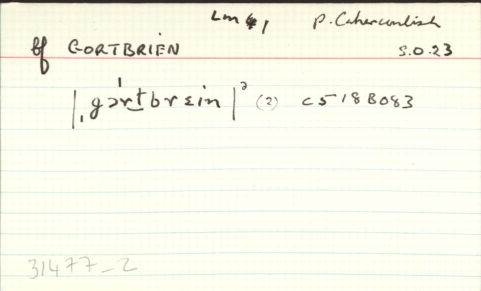 Lm 4, P. Cahercorlish
bf GORTBRIEN S.O.23
|ˌgərtˈbrɛin|² (2) C518B083
31477_2